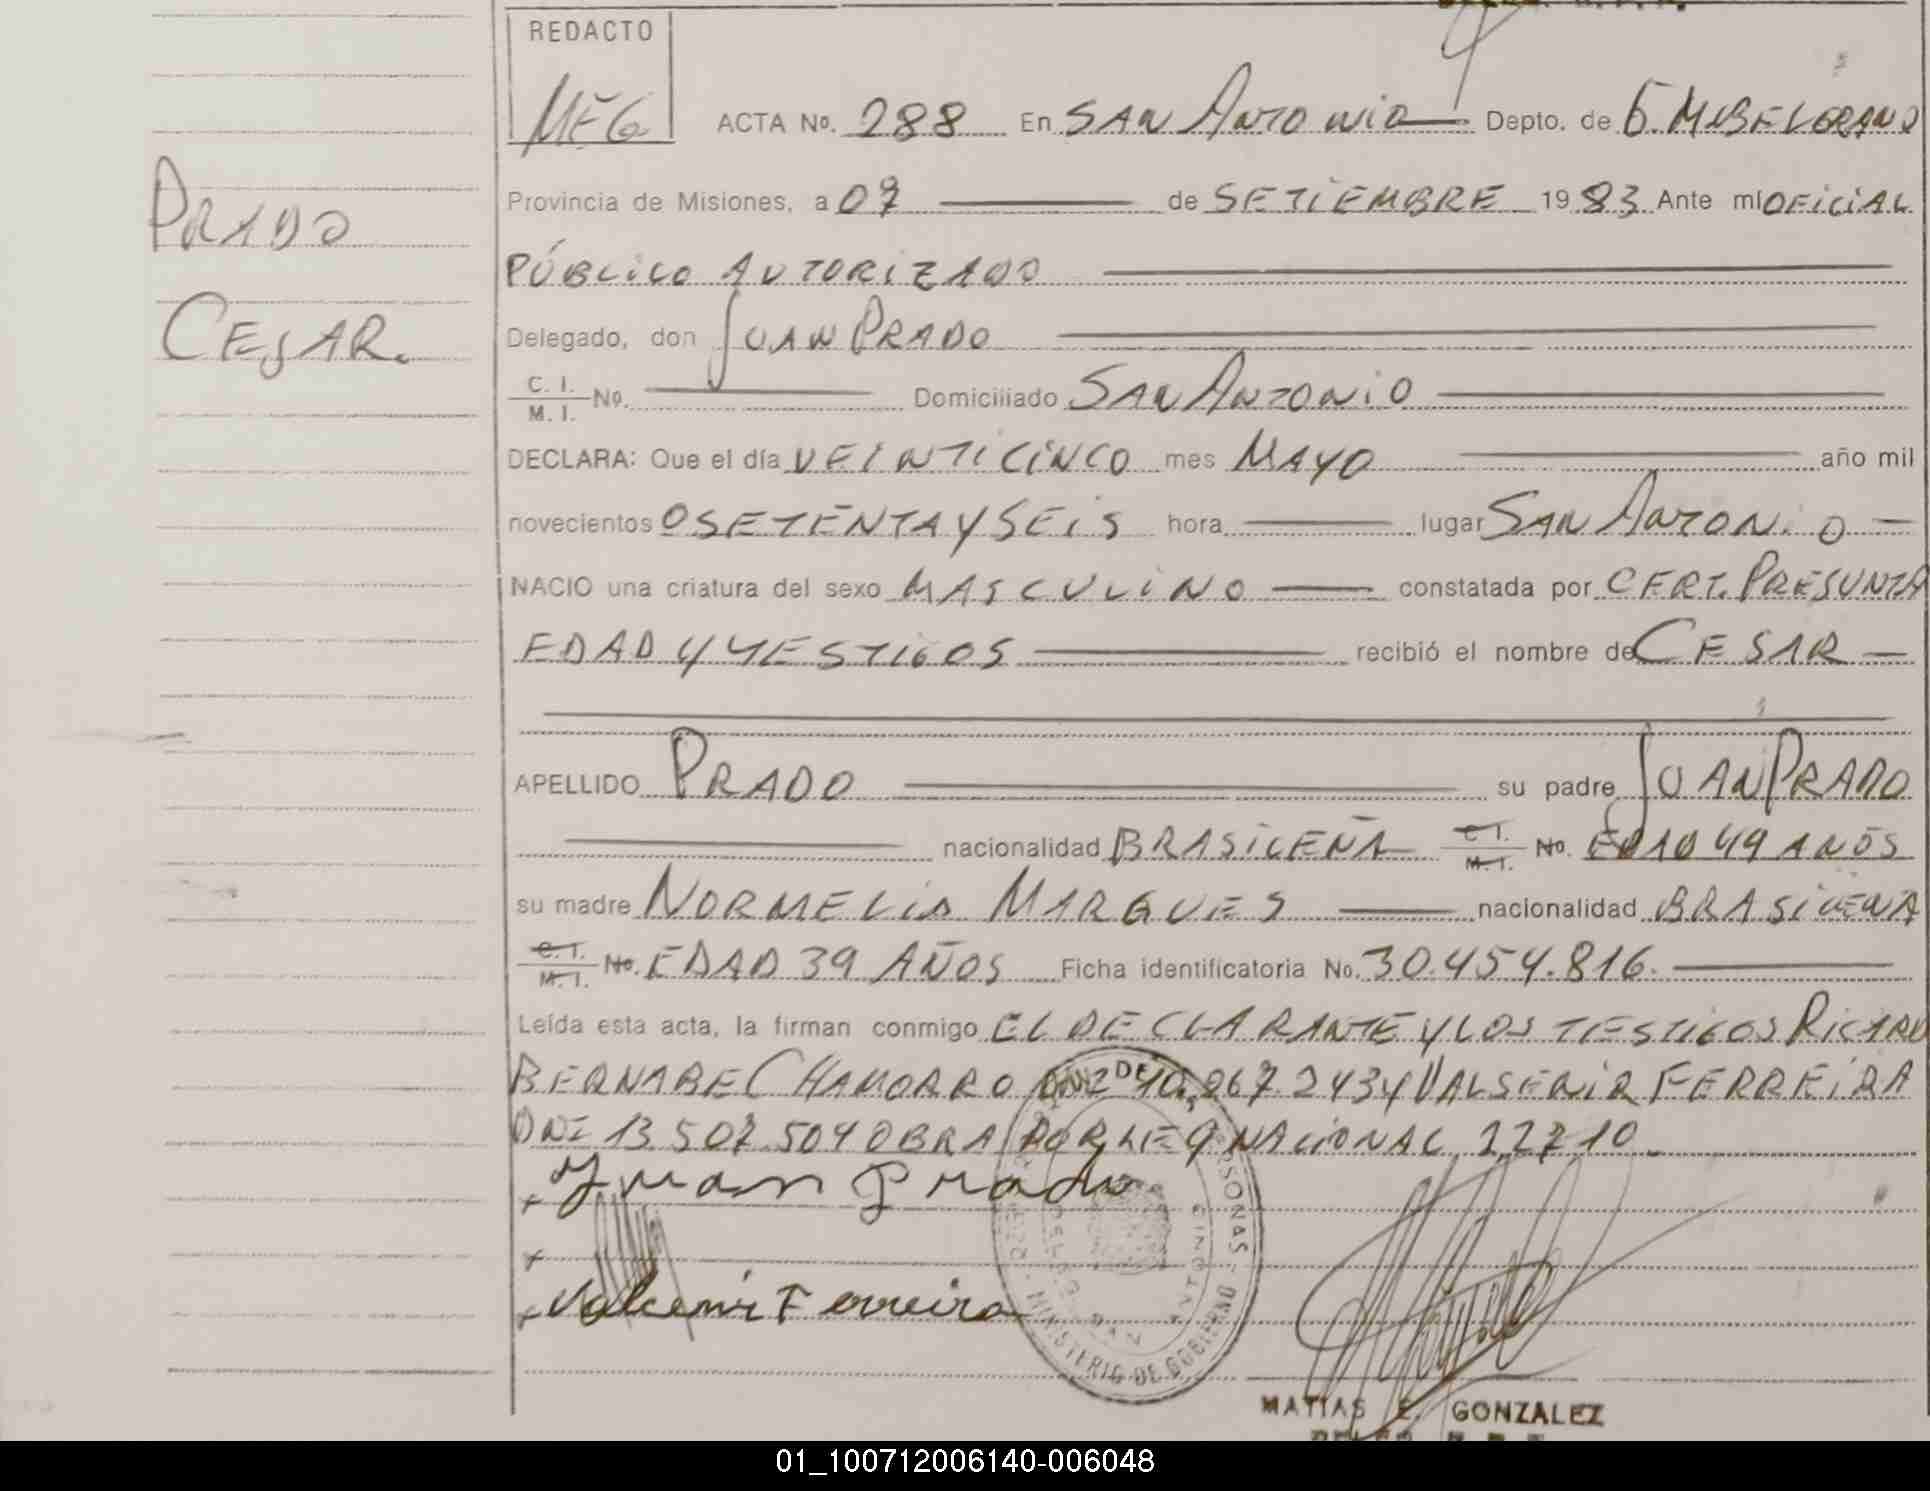 REDACTO
MEG
ACTA Nº. 288 En SAN ANTONIO Depto. de G. M. BELGRANO
PRADO
CESAR.
Provincia de Misiones, a 07 de SETIEMBRE 1983 Ante mí OFICIAL
PÚBLICO AUTORIZADO
Delegado, don JUAN PRADO
C. I.
M. I. Nº. Domiciliado SAN ANTONIO
DECLARA: Que el día VEINTICINCO mes MAYO año mil
novecientos SETENTA Y SEIS hora lugar SAN ANTONIO
NACIO una criatura del sexo MASCULINO constatada por CERT. PRESUNTA
EDAD Y TESTIGOS recibió el nombre de CESAR
APELLIDO PRADO su padre JUAN PRADO
nacionalidad BRASILEÑA C. I. M. I. No. EDAD 49 AÑOS
su madre NORMELIA MARQUES nacionalidad BRASILEÑA
C. I. M. I. No. EDAD 39 AÑOS Ficha identificatoria No. 30.454.816.
Leída esta acta, la firman conmigo EL DECLARANTE Y LOS TESTIGOS RICARDO
BERNABE CHAMORRO DNI 10.267.243 Y VALSENIR FERREIRA
DNI 13.507.504 OBRA POR LEY NACIONAL 22710.
x Juan Prado
x
x Valcemir Ferreira
PERSONAS - MINISTERIO DE GOBIERNO
SAN ANTONIO
MATIAS E. GONZALEZ
01_100712006140-006048